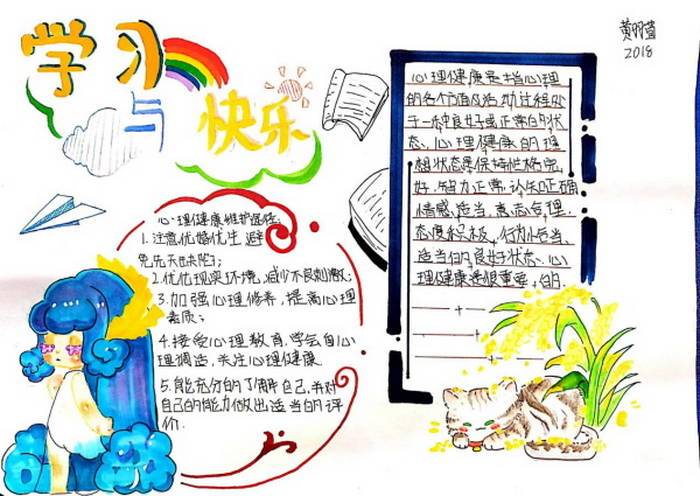 学习
与
快乐
2018
心理健康维护途径:
1.注意优婚优生,避
免先天缺陷;
2.优化现实环境,减少不良刺激;
3.加强心理修养,提高心理
素质;
4.接受心理教育,学会自心
理调适,关注心理健康
5.能充分的了解自己,并对
自己的能力做出适当的评
价.
心理健康是指心理
的各个方面及活动过程处
于一种良好或正常的状
态、心理健康的理
想状态是保持性格完
好,智力正常,认知正确
情感,适当,意志合理.
态度积极,行为恰当、
适当的良好状态、心
理健康是很重要,的.